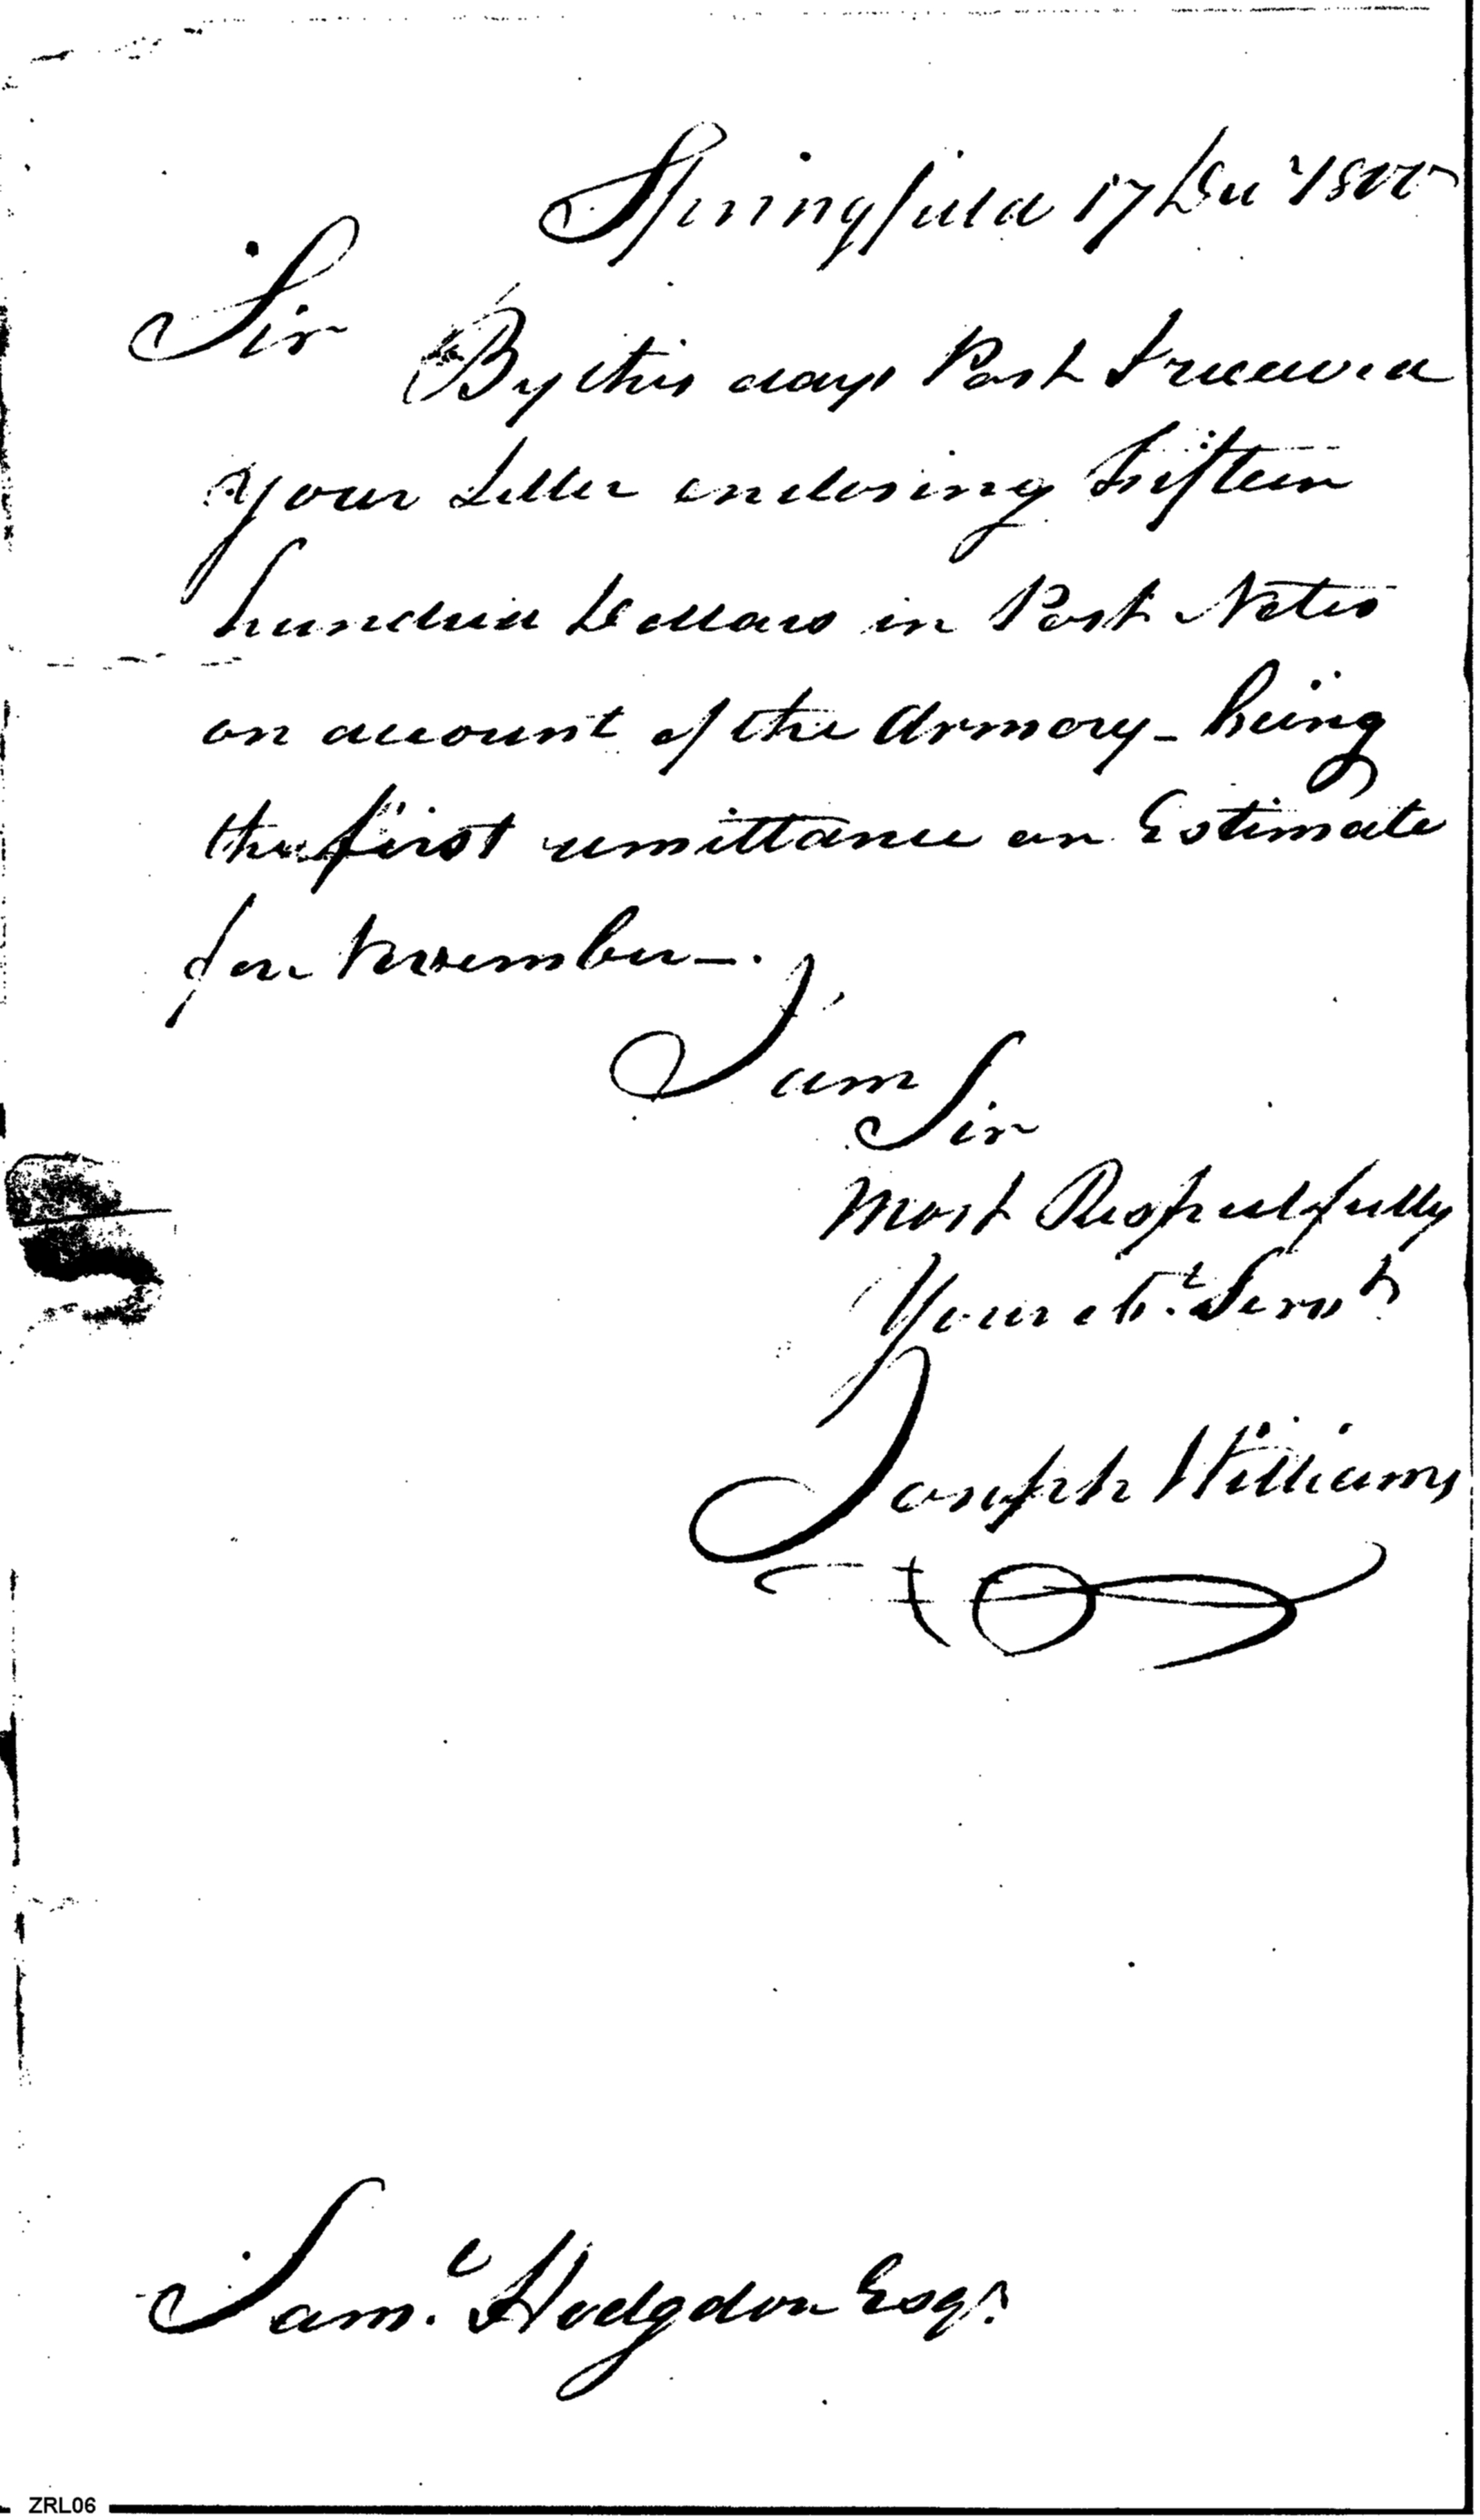 Springfield 17 Dec 1800
Sir
By this days Post I received
your Letter enclosing Fifteen
hundred Dollars in Post Notes
on account of the Armory - being
the first remittance on Estimate
for November -.
I am
Sir
Most Respectfully
Your Ob.t Servt
Joseph Williams
Sam.l Hodgdon Esqr.
ZRL06